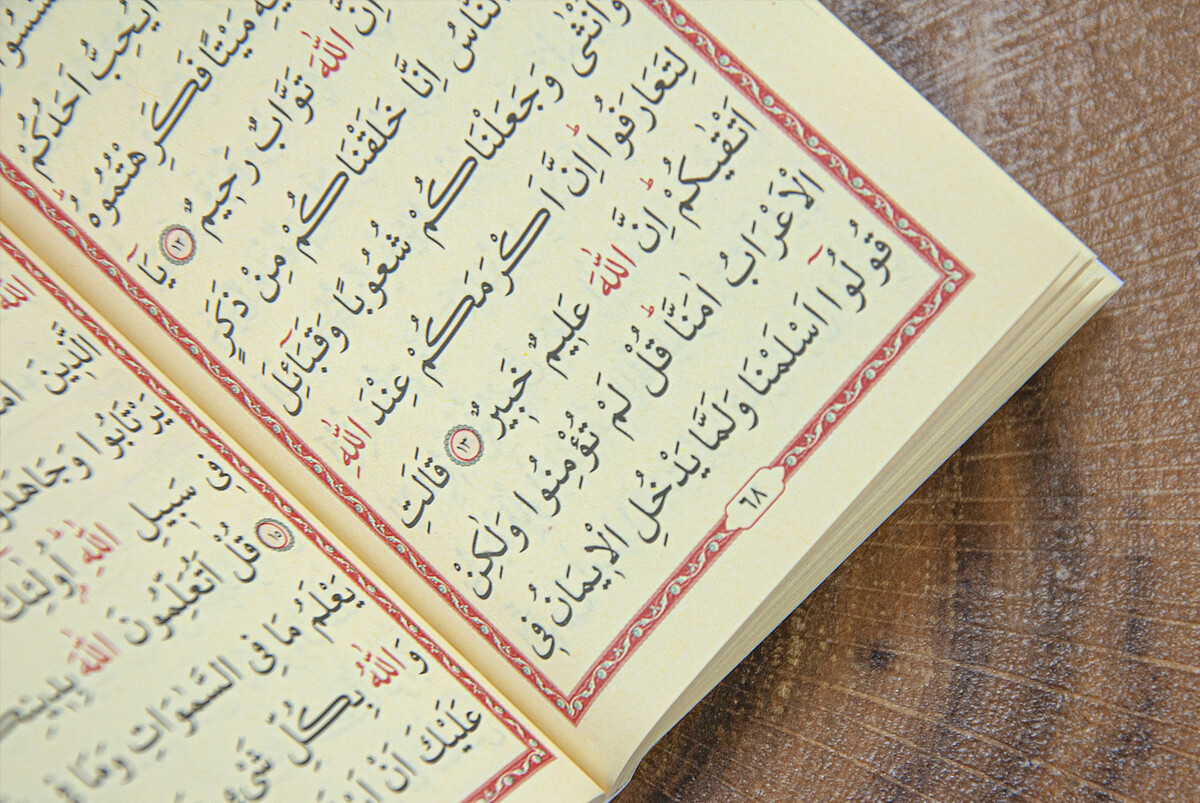 اَيُحِبُّ اَحَدُكُمْ
مَيْتًا فَكَرِهْتُمُوهُۜ
اِنَّ اللّٰهَ تَوَّابٌ رَحِيمٌ ﴿١٢﴾ يَٓا
النَّاسُ اِنَّا خَلَقْنَاكُمْ مِنْ ذَكَرٍ
وَاُنْثٰى وَجَعَلْنَاكُمْ شُعُوبًا وَقَبَٓائِلَ
لِتَعَارَفُواۜ اِنَّ اَكْرَمَكُمْ عِنْدَ اللّٰهِ
اَتْقٰيكُمْۜ اِنَّ اللّٰهَ عَلِيمٌ خَبِيرٌ ﴿١٣﴾ قَالَتِ
الْاَعْرَابُ اٰمَنَّاۜ قُلْ لَمْ تُؤْمِنُوا وَلٰكِنْ
قُولُٓوا اَسْلَمْنَا وَلَمَّا يَدْخُلِ الْاِيمَانُ فِي
٦٨
اللّٰهَ
الَّذِينَ
يَرْتَابُوا
فِي سَبِيلِ اللّٰهِۜ اُولٰٓئِكَ
﴿١٥﴾ قُلْ اَتُعَلِّمُونَ اللّٰهَ
يَعْلَمُ مَا فِي السَّمٰوَاتِ وَمَا فِي
وَاللّٰهُ بِكُلِّ شَيْءٍ
عَلَيْكَ اَنْ